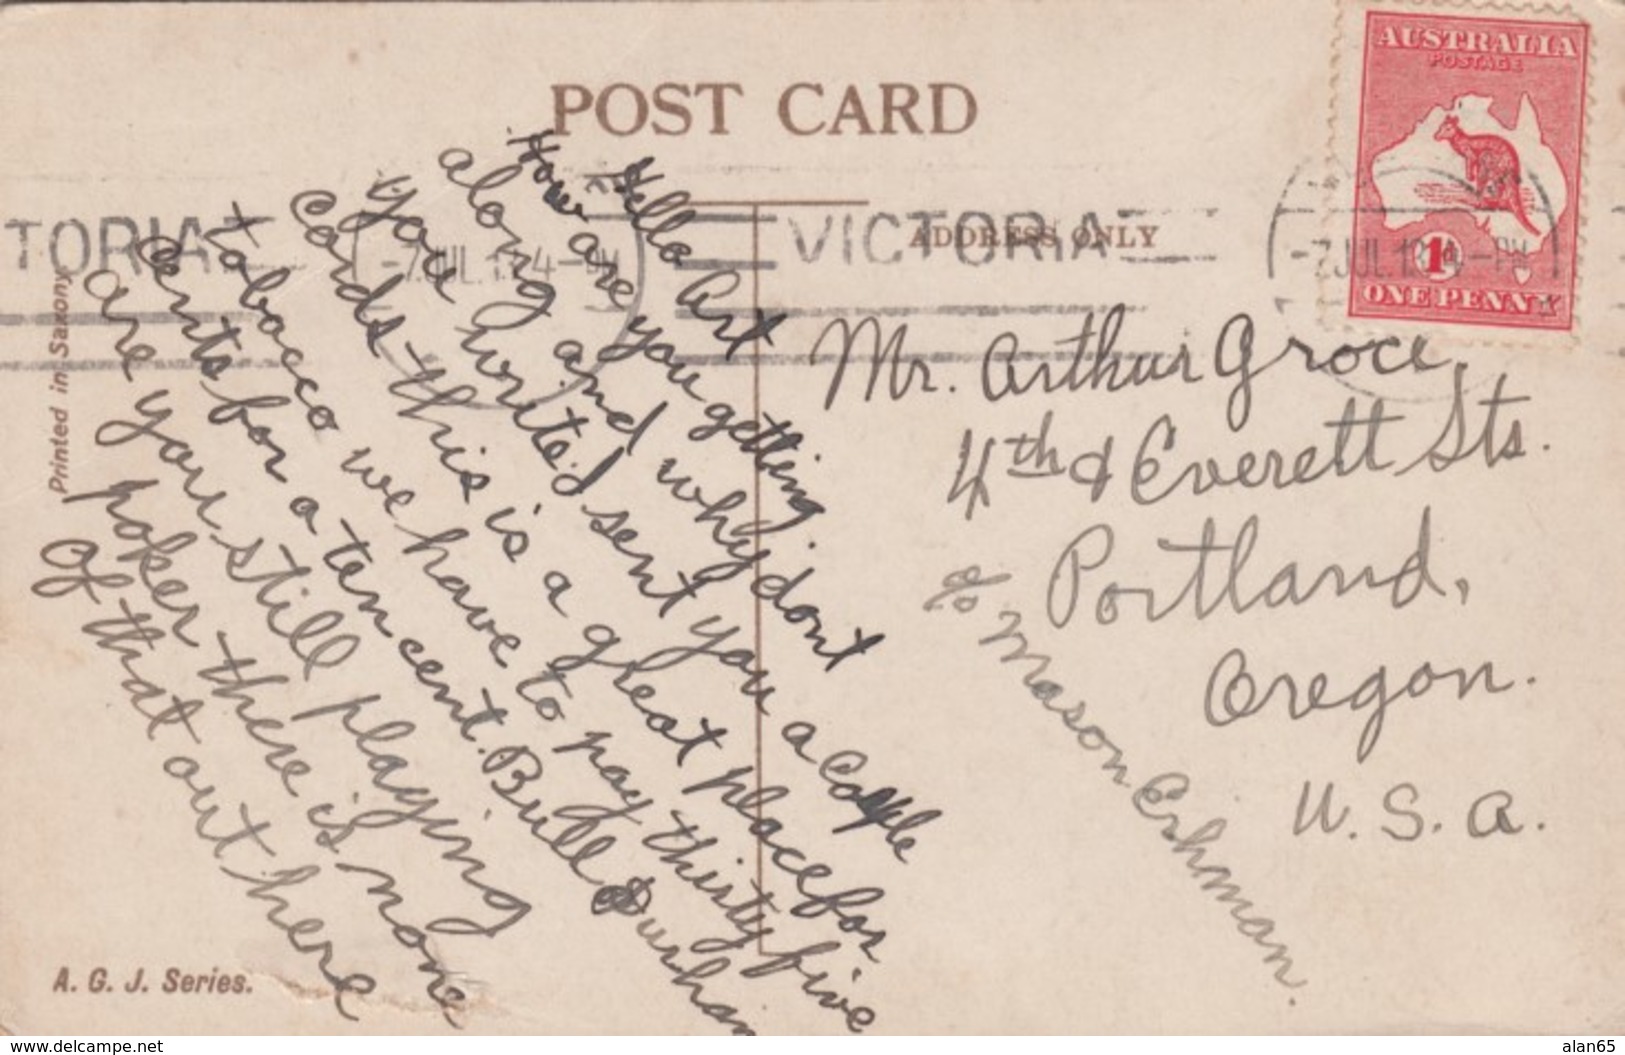 AUSTRALIA
POSTAGE
1d
ONE PENNY
POST CARD
ADDRESS ONLY
TORIA
VICTORIA
Printed in Saxony
A. G. J. Series.
Hello Art
How are you getting
along and why dont
you write I sent you a couple
cards this is a great place for
tobacco we have to pay thirty five
cents for a ten cent Bull Durham
are you still playing
poker there is none
of that out here
Mr. Arthur Groce
4th & Everett Sts.
Portland,
Oregon.
U. S. A.
c/o Mason Ehrman.
www.delcampe.net
alan65